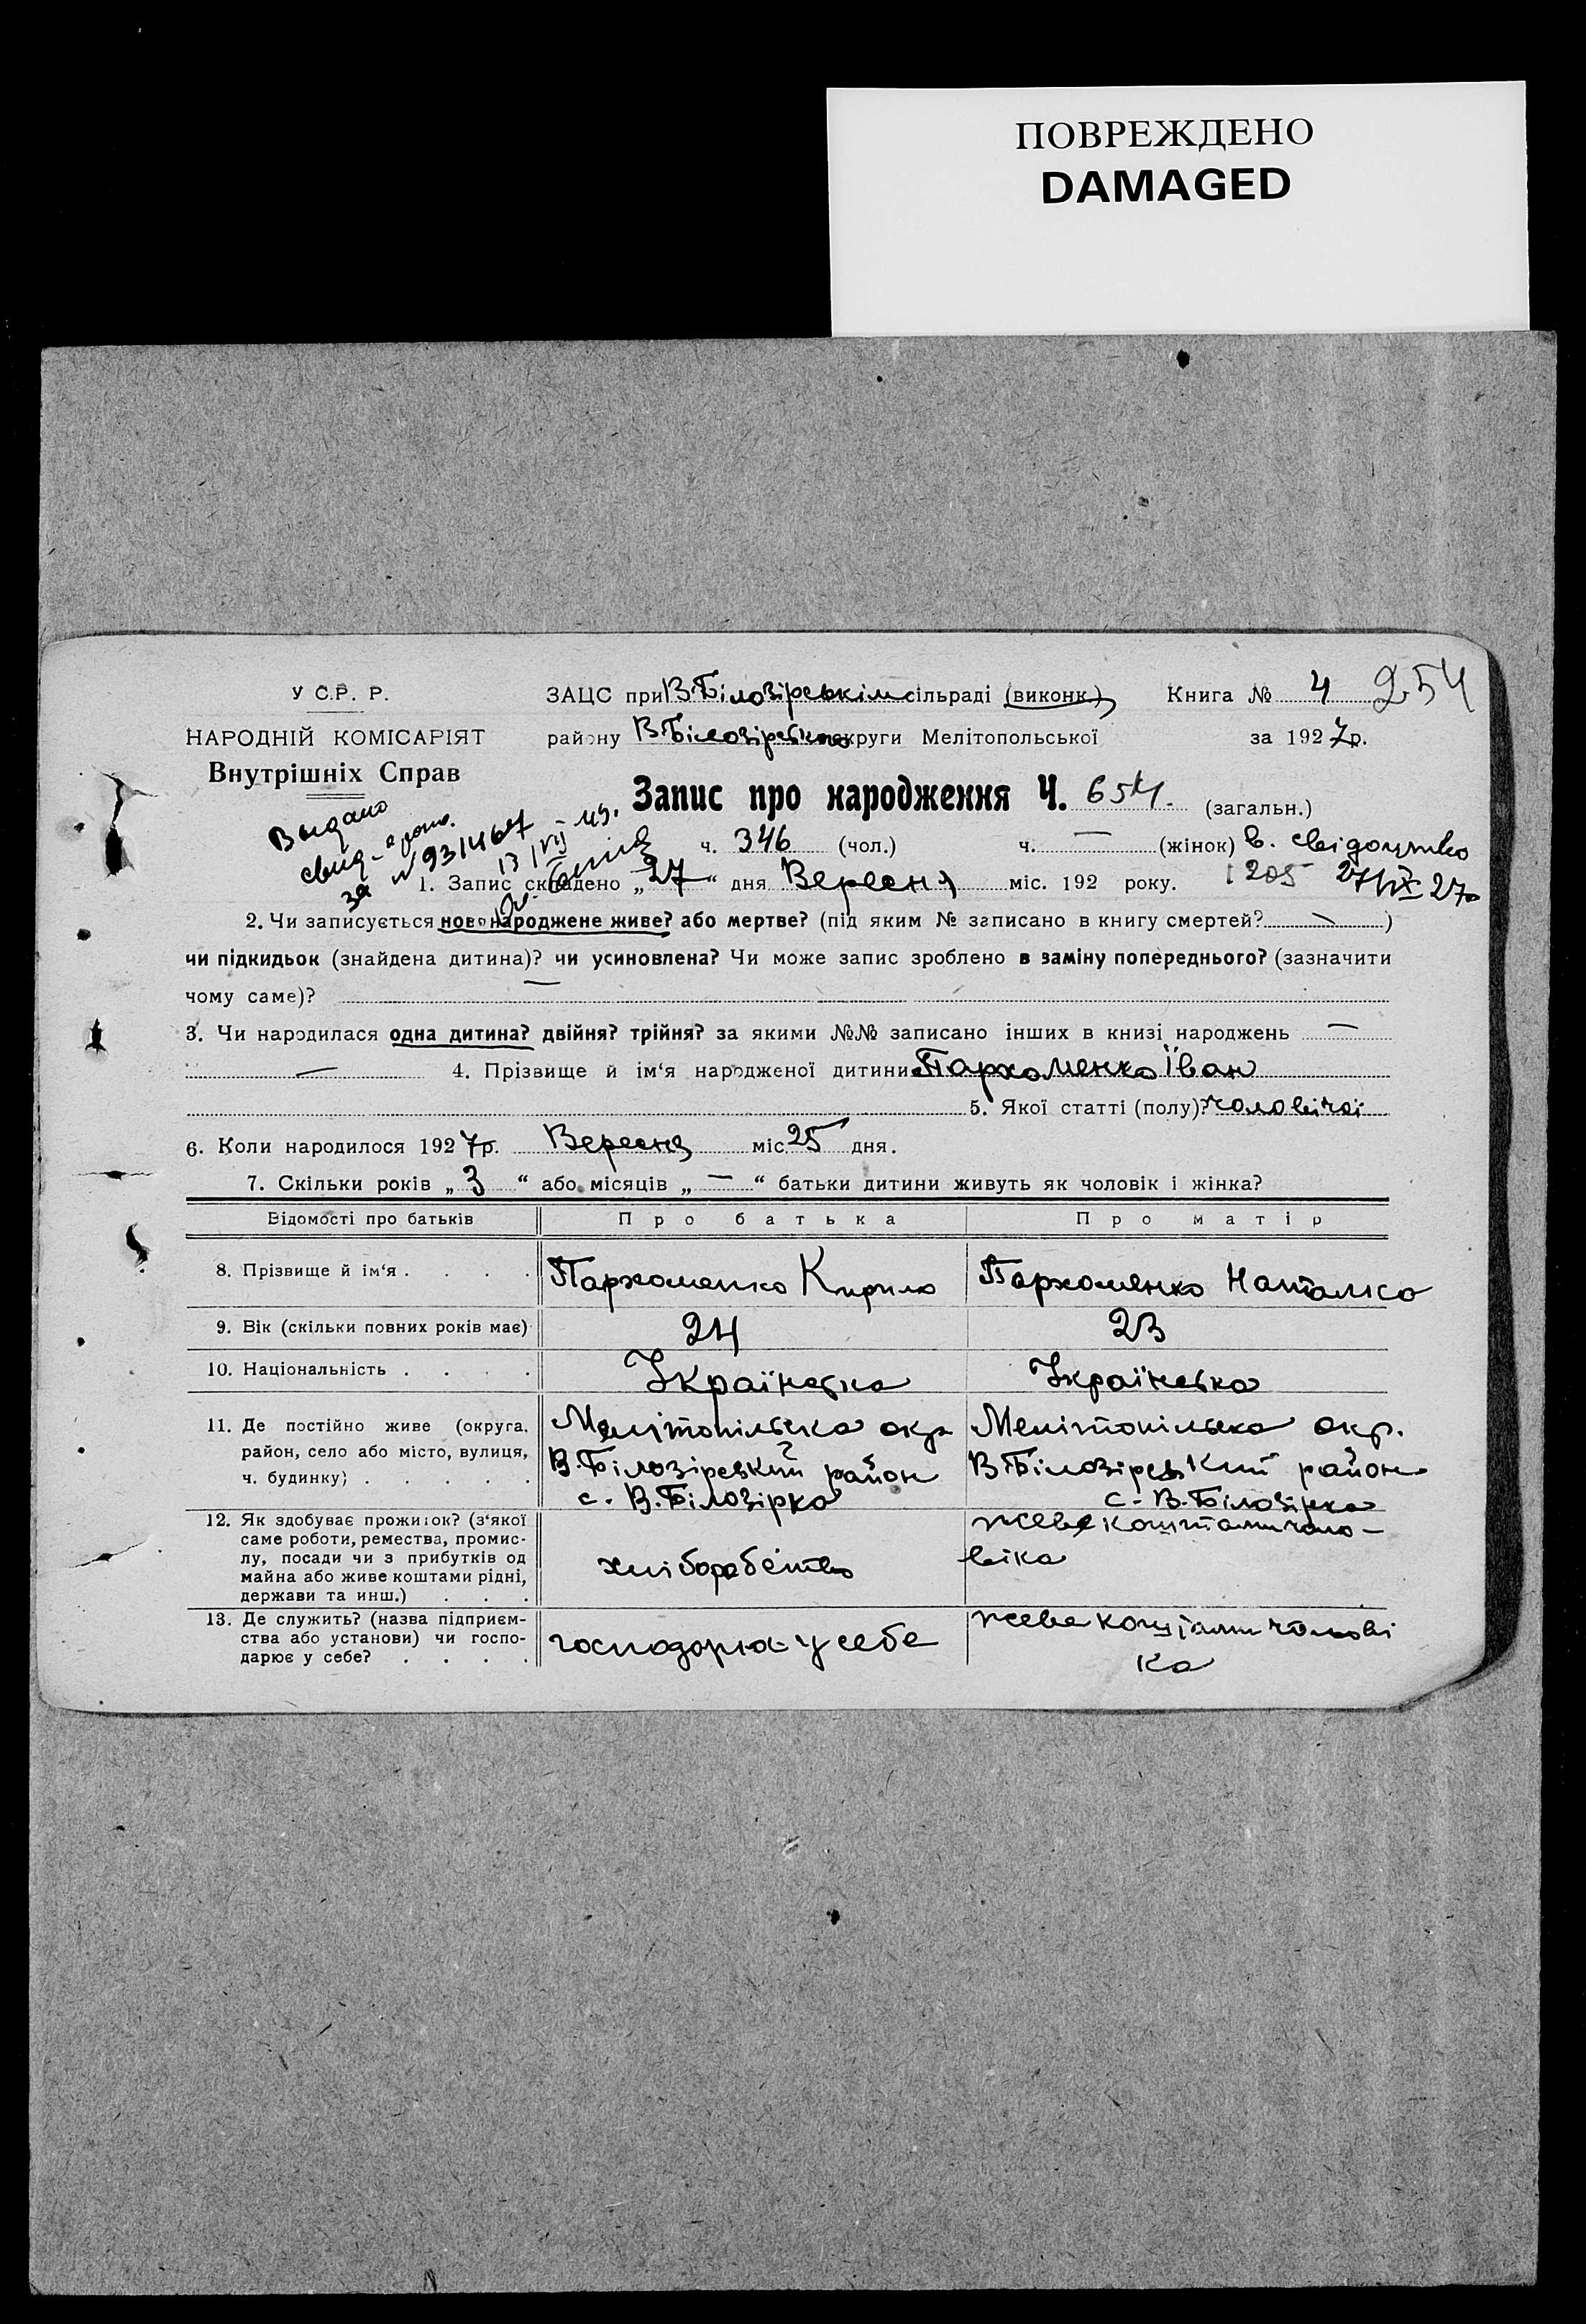 ПОВРЕЖДЕНО
DAMAGED
У С.Р. Р.
НАРОДНІЙ КОМІСАРІЯТ
Внутрішніх Справ
ЗАЦС при В.Білозірськім сільраді (виконк.)
Книга № 4 254
району В.Білозірського округи Мелітопольської
за 1927р.
Запис про народження Ч. 654. (загальн.)
Выдано
свид-
за № 931467
13/VII-49.
ч. 346 (чол.) ч. — (жінок) в. свідоцтво
1205 27/IX 27р
1. Запис складено „27“ дня Вересня міс. 192 року.
2. Чи записується новонароджене живе? або мертве? (під яким № записано в книгу смертей? — )
чи підкидьок (знайдена дитина)? чи усиновлена? Чи може запис зроблено в заміну попереднього? (зазначити
чому саме)? —
3. Чи народилася одна дитина? двійня? трійня? за якими №№ записано інших в книзі народжень —
— 4. Прізвище й ім'я народженої дитини Пархоменко Їван
5. Якої статті (полу)? чоловічої
6. Коли народилося 1927р. Вересня міс. 25 дня.
7. Скільки років „3“ або місяців „—“ батьки дитини живуть як чоловік і жінка?
Відомості про батьків Про батька Про матір
8. Прізвище й ім'я . . . . Пархоменко Кирило Пархоменко Наталка
9. Вік (скільки повних років має) 24 23
10. Національність . . . . Українська Українська
11. Де постійно живе (округа,
район, село або місто, вулиця,
ч. будинку) . . . . .
Мелітопільська окр
В.Білозірський район
с. В.Білозірка
Мелітопільська окр.
В.Білозірський район
с. В.Білозірка
12. Як здобуває прожиток? (з'якої
саме роботи, ремества, промис-
лу, посади чи з прибутків од
майна або живе коштами рідні,
держави та инш.) . . .
хліборобство
живе коштами чоло-
віка
13. Де служить? (назва підприєм-
ства або установи) чи госпо-
дарює у себе? . . . .
господарює у себе
живе коштами чолові
ка